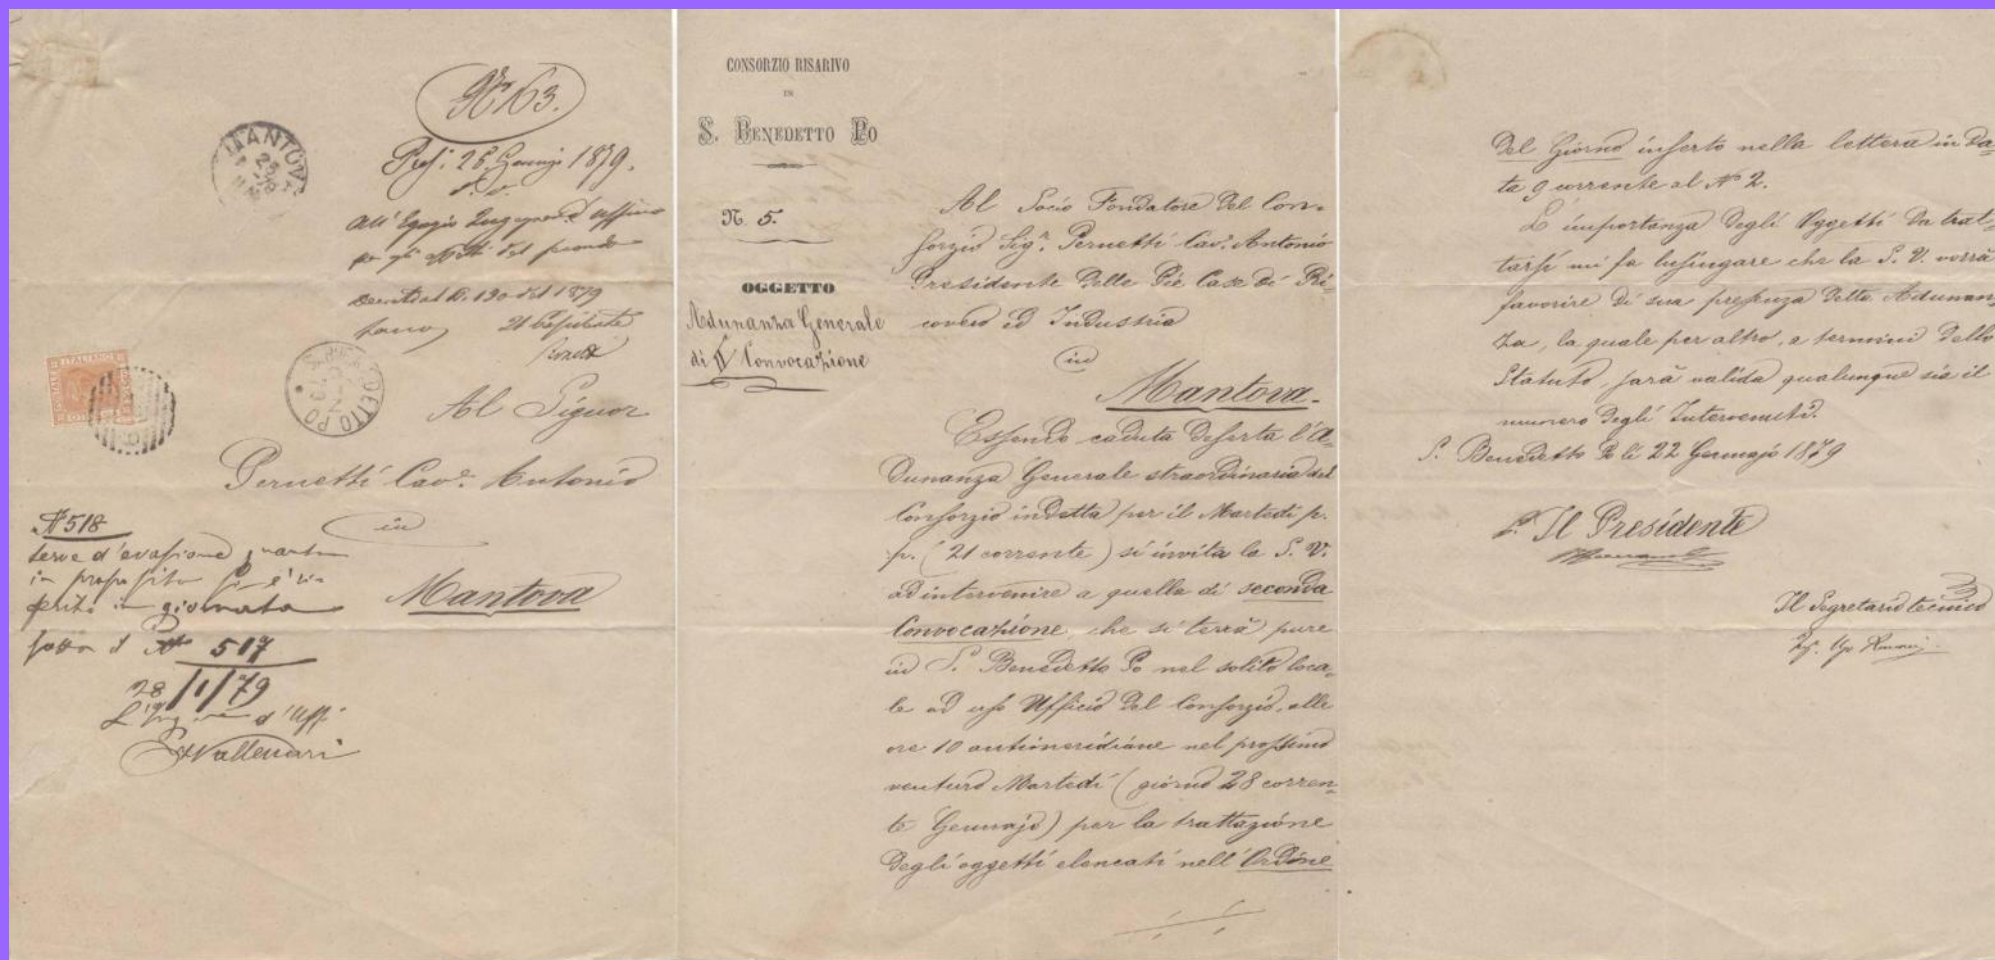 No 163.
Pres: 26 Gennajo 1879.
All' Egregio Ingegnere d'Ufficio
MANTOVA
S. BENEDETTO PO
Al Signor
Pernetti Cav.e Antonio
in
Mantova
N 518
serve d'evasione quanto
in proposito si è rife
rito in giornata
sotto il N 517
28/1/79
L'Ing d'Uff
CONSORZIO RISARIVO
IN
S. BENEDETTO PO
N. 5.
OGGETTO
Adunanza Generale
di IIa Convocazione
Al Socio Fondatore del Con-
sorzio Sigr. Pernetti Cav. Antonio
Presidente delle Pie Case di Ri-
covero ed Industria
in
Mantova.
Essendo caduta deserta l'A-
dunanza Generale straordinaria del
Consorzio indetta per il Martedì p.
p. (21 corrente) si invita la S. V.
ad intervenire a quella di seconda
Convocazione, che si terrà pure
in S. Benedetto Po nel solito loca-
le ad uso Ufficio del Consorzio, alle
ore 10 antimeridiane nel prossimo
venturo Martedì (giorno 28 corren-
te Gennajo) per la trattazione
degli oggetti elencati nell'Ordine
del Giorno inserto nella lettera in da-
ta 9 corrente al No 2.
L'importanza degli Oggetti da trat-
tarsi mi fa lusingare che la S. V. vorrà
favorire di sua presenza detta Adunan-
za, la quale per altro, a termini dello
Statuto, sarà valida qualunque sia il
numero degli Intervenuti.
S. Benedetto Po li 22 Gennajo 1879
Il Presidente
Il Segretario tecnico